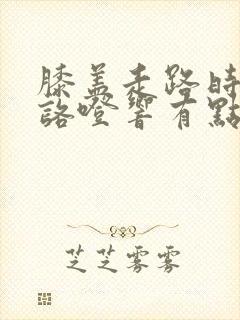 膝盖走路时
咯噔响有點
芝芝雾雾